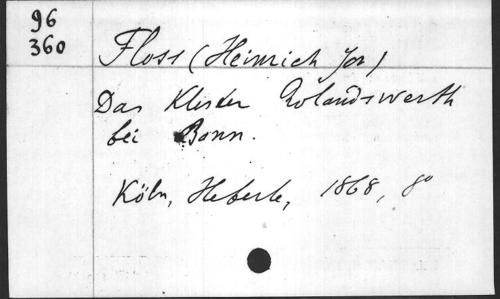 96
360
Floss (Heinrich Jos)
Das Kloster Rolandswerth
bei Bonn.
Köln, Heberle, 1868, 8°